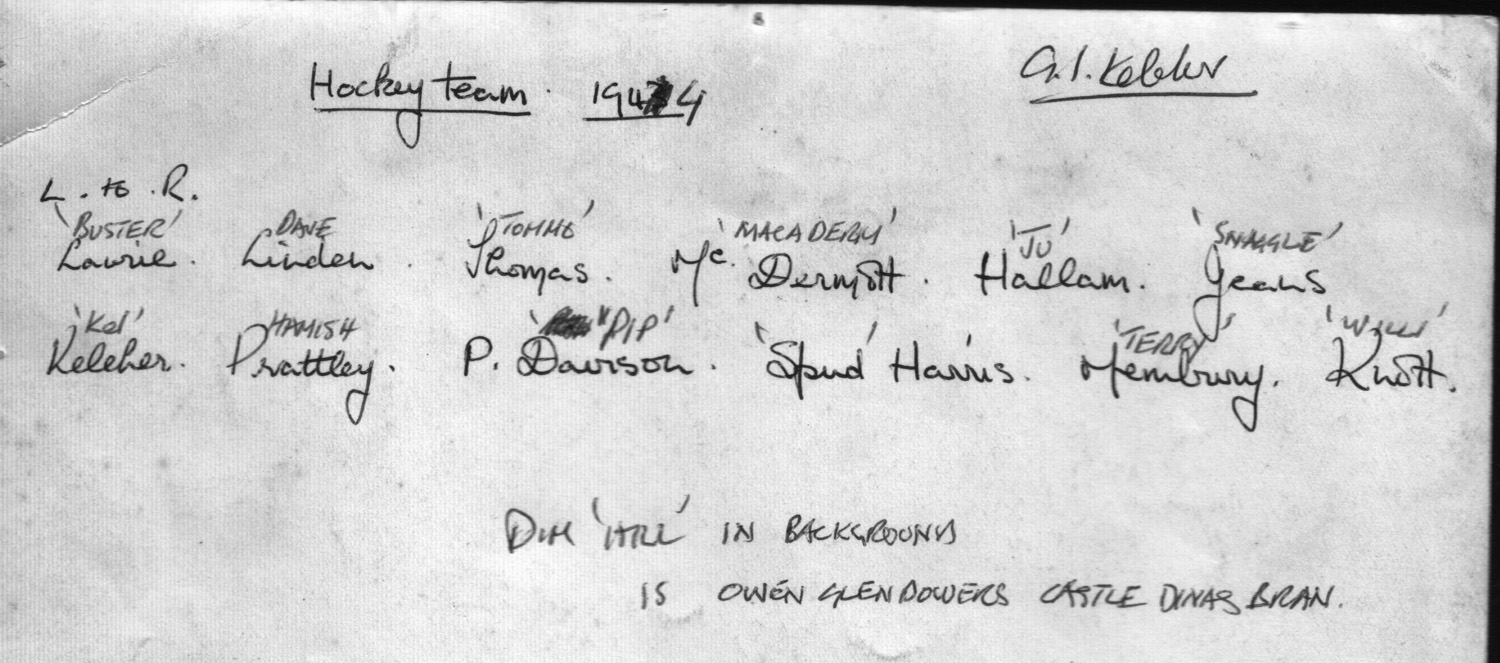 Hockey team. 1944 G.I. Keleher
L. to .R.
'BUSTER' DAVE 'TOMMO' 'MACADERM' 'JU' 'SNAGGLE'
Laurie. Linden. Thomas. Mc. Dermott. Hallam. Jeans
'Kel' HAMISH '"PIP' 'TERRY' 'WILLI'
Keleher. Prattley. P. Davison. 'Spud' Harris. Membury. Knott.
DIM 'HILL' IN BACKGROUND
IS OWEN GLENDOWERS CASTLE DINAS BRAN.